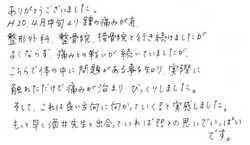 ありがとうございました。
H20.4月中旬より踵の痛みが有、
整形外科、整骨院、接骨院と行き続けましたが
よくならず、痛みとの戦いが続いていましたが、
こちらで体の中に問題がある事を知り、実際に
触れただけで痛みが治まり びっくりしました。
そして、これは良い方向に向かっていくぞと実感しました。
もっと早く酒井先生と出会っていればＥＥとの思いでいっぱい
です。